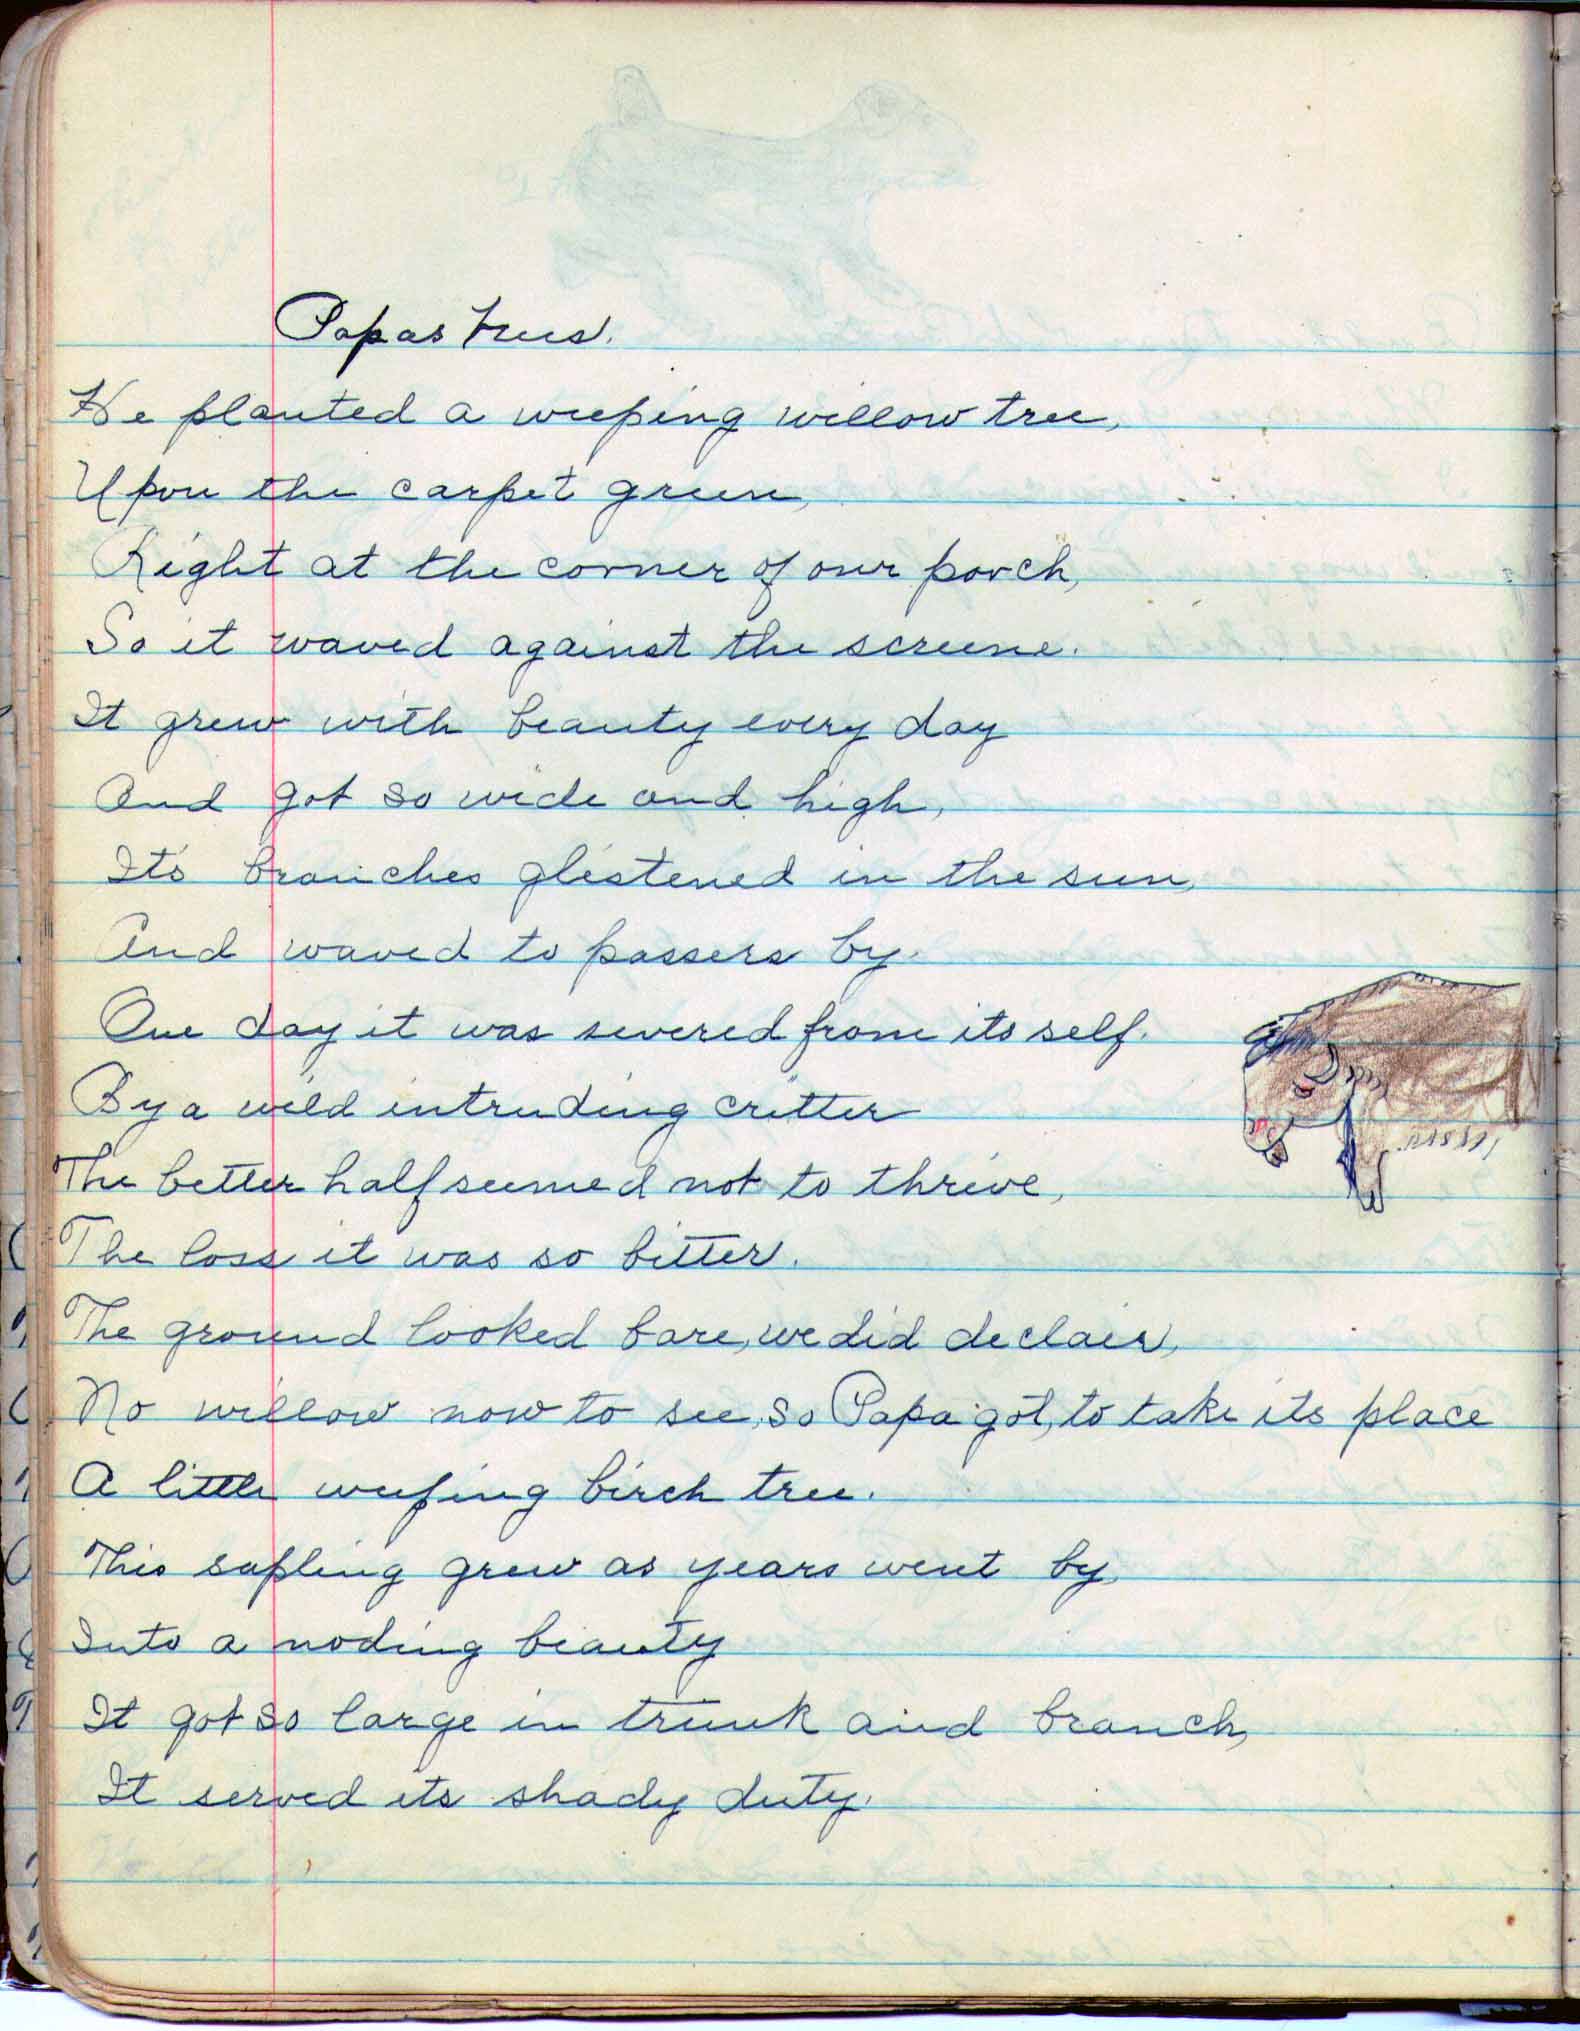 Papas trees.
He planted a weeping willow tree,
Upon the carpet green,
Right at the corner of our porch,
So it waved against the screene.
It grew with beauty every day
And got so wide and high,
It's branches glistened in the sun,
And waved to passers by.
One day it was severed from its self.
By a wild intruding critter
The better half seemed not to thrive,
The loss it was so bitter.
The ground looked bare, we did declair,
No willow now to see, so Papa got, to take its place
A little weeping birch tree.
This sapling grew as years went by,
Into a noding beauty
It got so large in trunk and branch,
It served its shady duty.